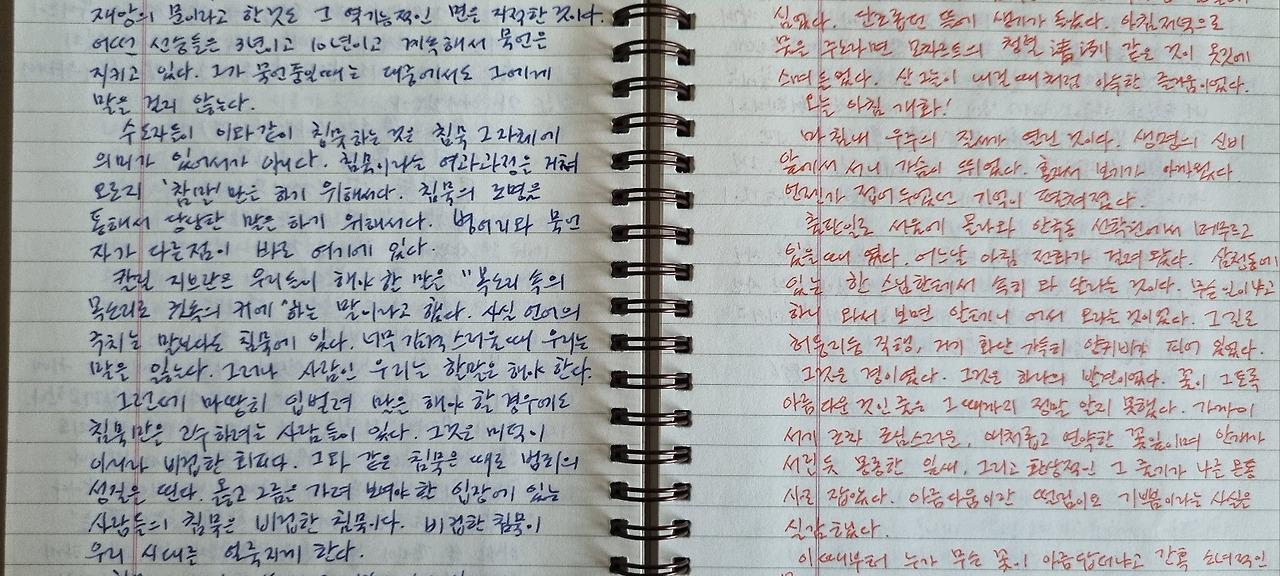 재앙의 문이라고 한것도 그 역기능적인 면을 지적한 것이다.
어떤 선승들은 3년이고 10년이고 계속해서 묵언을
지키고 있다. 그가 묵언중일때는 대중에서도 그에게
말을 걸지 않는다.
수도자들이 이와같이 침묵하는 것은 침묵 그자체에
의미가 있어서가 아니다. 침묵이라는 여과과정을 거쳐
오로지 '참말'만을 하기 위해서다. 침묵의 조명을
통해서 당당한 말을 하기 위해서다. 벙어리와 묵언
자가 다른점이 바로 여기에 있다.
칼릴 지브란은 우리들이 해야 한 말을 "목소리 속의
목소리로 귓속의 귀에" 하는 말이라고 했다. 사실 언어의
극치는 말보다도 침묵에 있다. 너무 감격스러울때 우리는
말을 잃는다. 그러나 사람인 우리는 할말은 해야 한다.
그런데 마땅히 입벌려 말을 해야 할 경우에도
침묵만을 고수하려는 사람들이 있다. 그것은 미덕이
아니라 비겁한 회피다. 그와 같은 침묵은 때로 범죄의
성질을 띤다. 옳고 그름을 가려 보여야 한 입장에 있는
사람들의 침묵은 비겁한 침묵이다. 비겁한 침묵이
우리 시대를 얼룩지게 한다.
심었다. 단조롭던 뜰에 생기가 돌았다. 아침저녁으로
물을 주노라면 모차르트의 청렬 淸冽 같은 것이 옷깃에
스며들었다. 산그늘이 내릴때처럼 아늑한 즐거움이었다.
오늘 아침 개화!
마침내 우주의 질서가 열린 것이다. 생명의 신비
앞에서 서니 가슴이 뛰었다. 혼자서 보기가 아까웠다
언젠가 접어두었던 기억이 펼쳐졌다.
출판일로 서울에 올라와 안국동 선학원에서 머무르고
있을때 였다. 어느날 아침 전화가 걸려 왔다. 삼청동에
있는 한 스님한테서 속히 와 달라는 것이다. 무슨 일이냐고
하니 와서 보면 알테니 어서 오라는것이었다. 그길로
허둥지둥 직행, 거기 화단 가득히 양귀비가 피어 있었다.
그것은 경이였다. 그것은 하나의 발견이었다. 꽃이 그토록
아름다운 것인 줄은 그때까지 정말 알지 못했다. 가까이
서기 조차 조심스러운, 애처롭고 연약한 꽃잎이며 안개가
서린듯 몽롱한 잎새, 그리고 환상적인 그 줄기가 나를 온통
사로 잡았다. 아름다움이란 떨림이요 기쁨이라는 사실을
실감했다.
이때부터 누가 무슨 꽃이 아름답더냐고 간혹 소녀적인